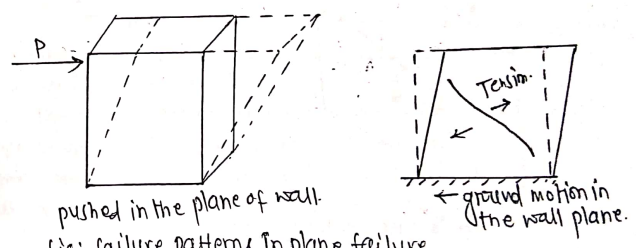 P
Tension.
pushed in the plane of wall.
← ground motion in
the wall plane.
fig: failure patterns In plane failure